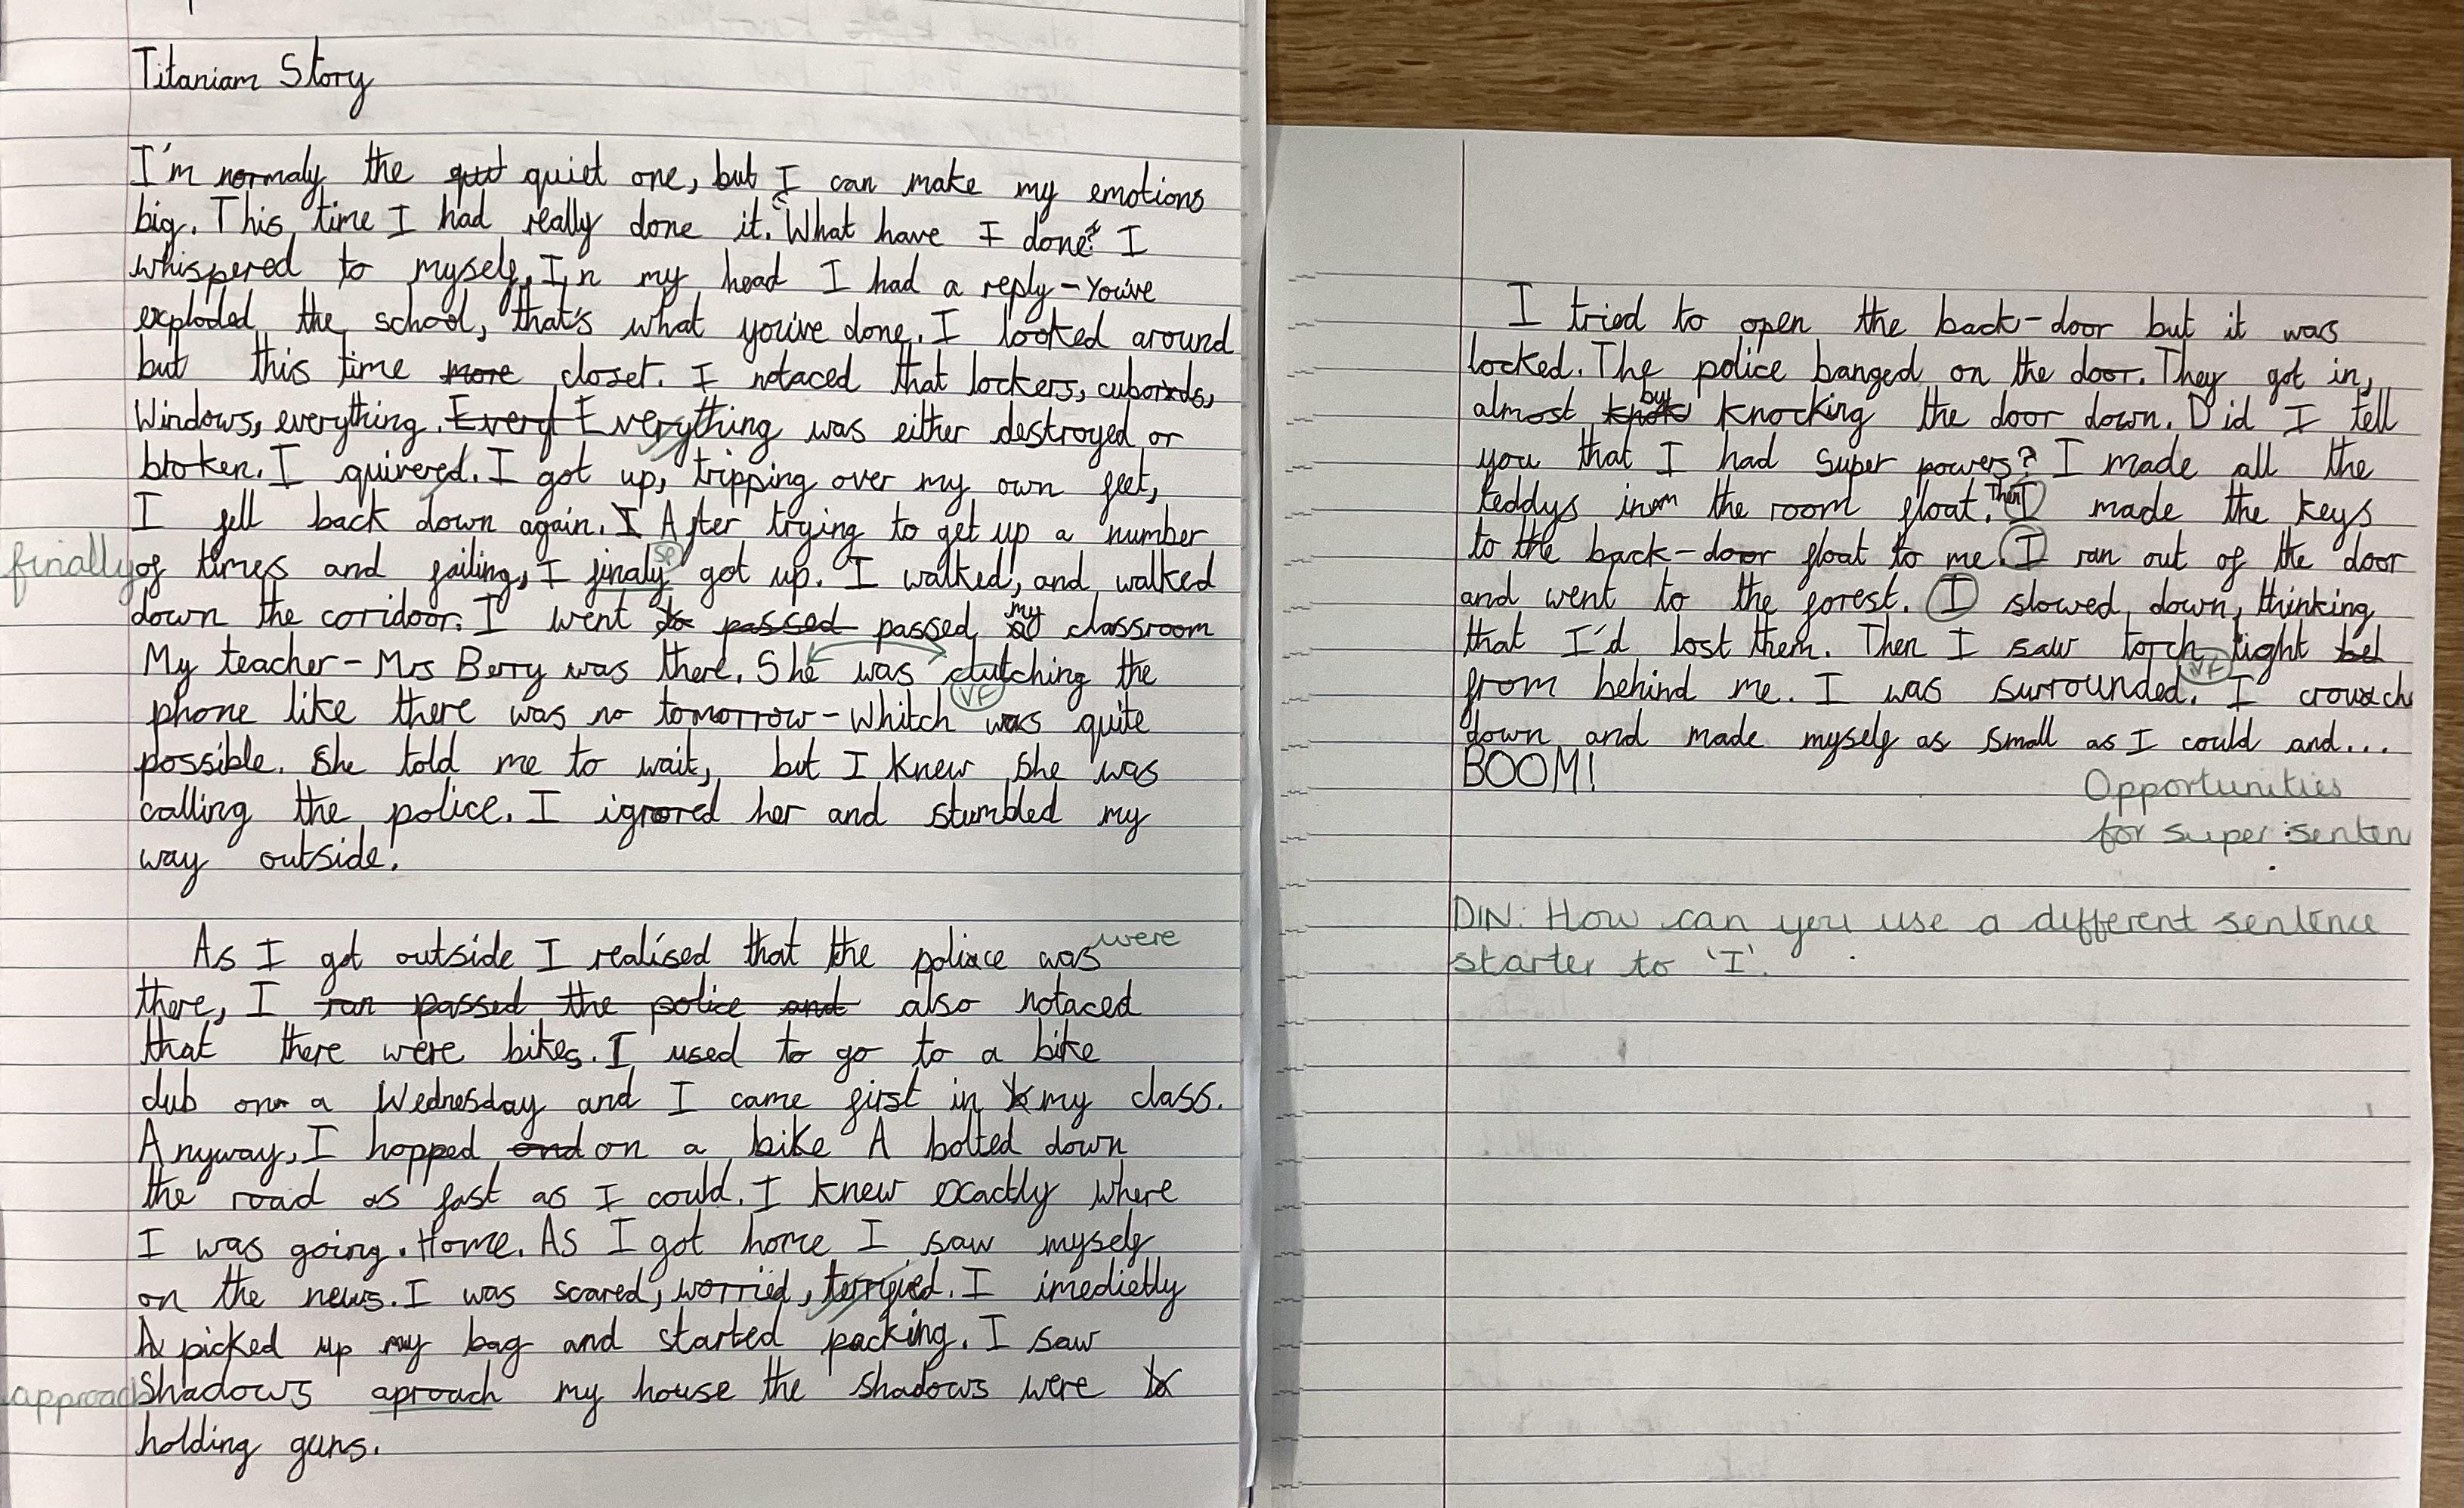 Titaniam Story
I'm normaly the quiet one, but I can make my emotions
big. This time I had really done it. "What have I done?" I
whispered to myself, In my head I had a reply - You've
exploded the school, that's what you've done. I looked around
but this time more closer. I notaced that lockers, cubords,
Windows, everything. Everyf Everything was either destroyed or
broken. I quivered. I got up, tripping over my own feet,
I fell back down again. I After trying to get up a number
finally of times and failing, I finaly sp got up. I walked, and walked
down the coridoor. I went to passed passed my classroom
My teacher - Mrs Berry was there. She was clutching the
VF
phone like there was no tomorrow - whitch was quite
possible. She told me to wait, but I knew she was
calling the police. I ignored her and stumbled my
way outside.
As I got outside I realised that the police was were
there, I ran passed the police and also notaced
that there were bikes. I used to go to a bike
club on a Wednesday and I came first in my class.
Anyway, I hopped and on a bike A bolted down
the road as fast as I could. I knew exactly where
I was going. Home. As I got home I saw myself
on the news. I was scared, worried, terrified. I imedietly
picked up my bag and started packing. I saw
approach Shadows aproach my house the shadows were
holding guns.
I tried to open the back-door but it was
locked. The police banged on the door. They got in,
almost by knocking the door down. Did I tell
you that I had super powers? I made all the
teddys in the room float. Then I made the keys
to the back-door float to me. I ran out of the door
and went to the forest. I slowed down, thinking
that I'd lost them. Then I saw torch light bel
VF
from behind me. I was surrounded. I crouch
down and made myself as small as I could and...
BOOM!
Opportunities
for super senten
DIN: How can you use a different sentence
starter to 'I'.